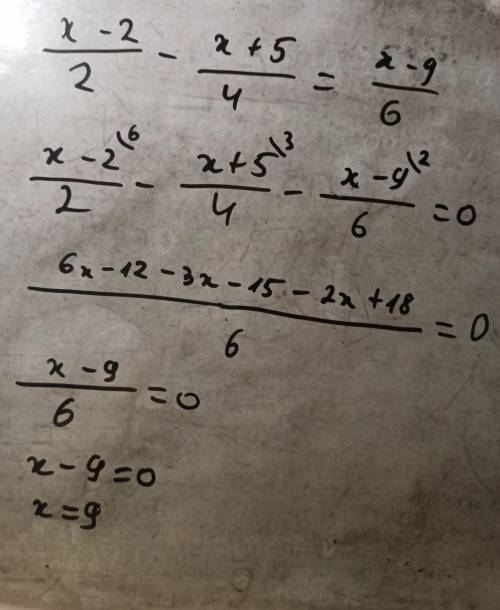 x - 2 / 2 - x + 5 / 4 = x - 9 / 6
x - 2 \6 / 2 - x + 5 \3 / 4 - x - 9 \2 / 6 = 0
6x - 12 - 3x - 15 - 2x + 18 / 6 = 0
x - 9 / 6 = 0
x - 9 = 0
x = 9